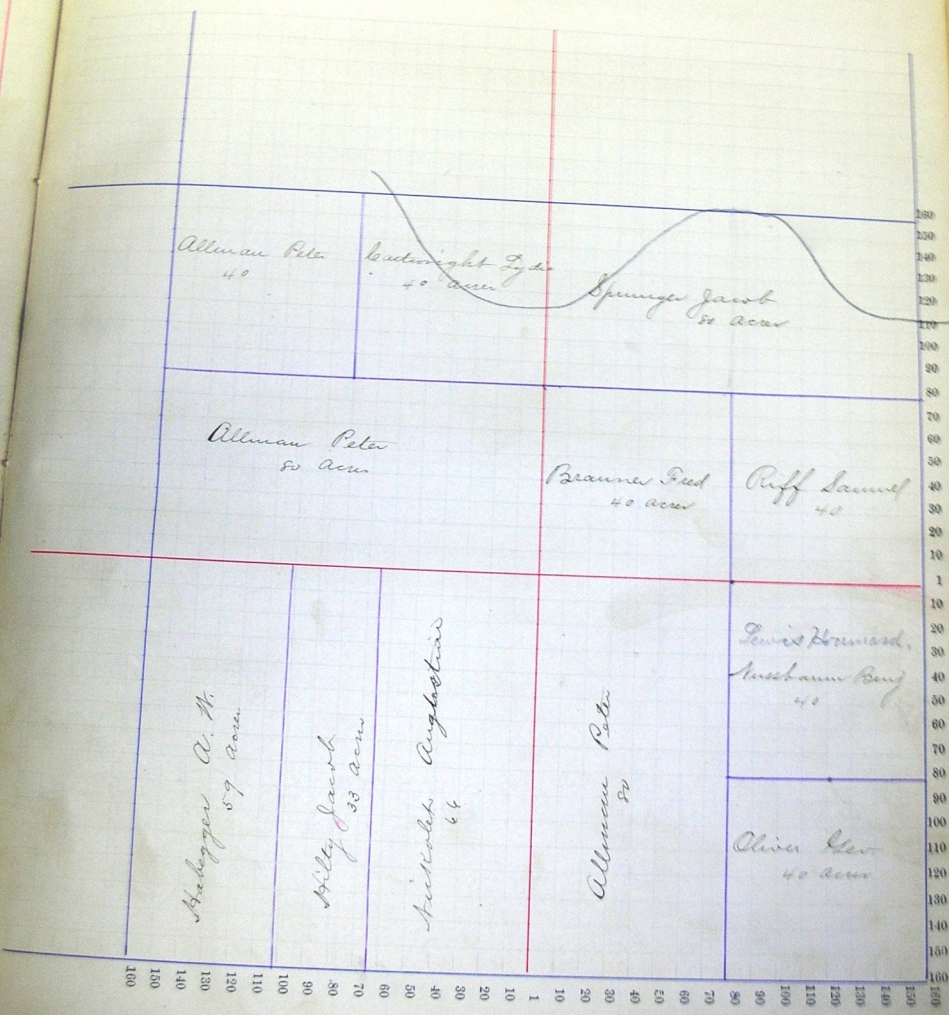 Allman Peter
40
Cartwright Lydia
40 acres
Sprunger Jacob
80 acres
Allman Peter
80 acres
Brauner Fred
40 acres
Riff Samuel
40
Lewis
Nussbaum Benj
40
Habegger A. W.
59 acres
Hilty Jacob
33 acres
66
Allman Peter
80
Oliver Geo.
40 acres
160
150
140
130
120
110
100
90
80
70
60
50
40
30
20
10
1
10
20
30
40
50
60
70
80
90
100
110
120
130
140
150
160
160 150 140 130 120 110 100 90 80 70 60 50 40 30 20 10 1 10 20 30 40 50 60 70 80 90 100 110 120 130 140 150 160